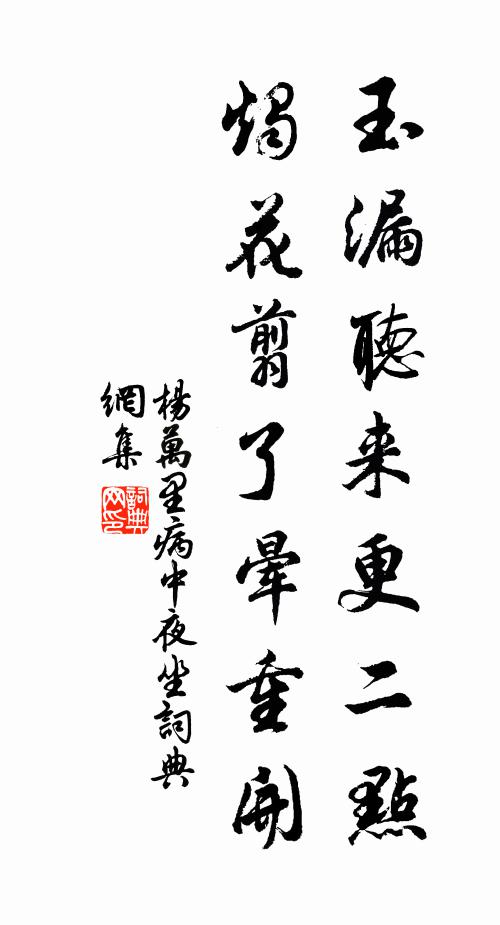 玉漏聽来更二點
燭花翦了暈重開
楊萬里病中夜坐詞典
網集
詞典
网印